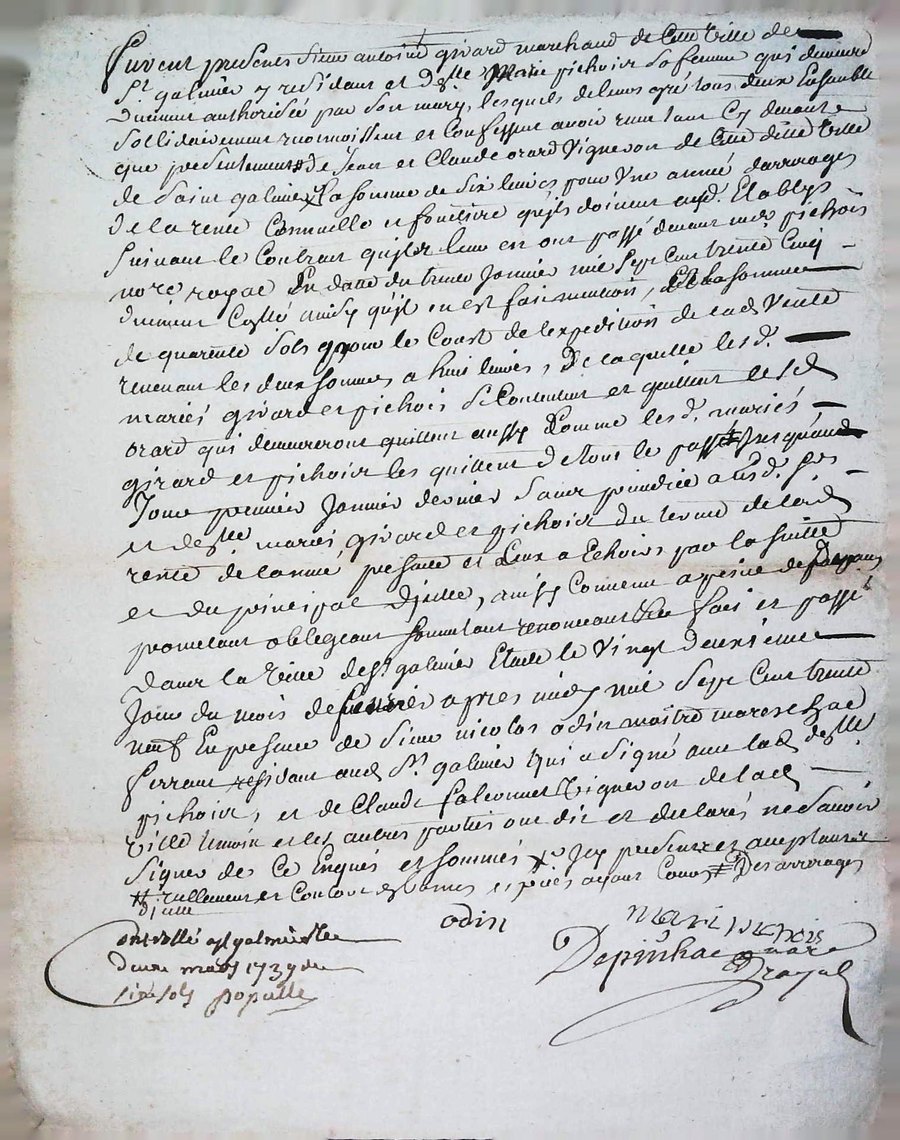 furent presents sieur antoine girard marchand de cette ville de
St galmier y residant et delle Marie pichoir sa femme qui demeure
duement authorisée par son mary, lesquels de leurs gré tous deux Ensemble
sollidairement reconnoissent et Confessent avoir reçu tant Cy devant
que presentement de Jean et Claude orard Vigneron de cette ditte ville
de saint galmier la somme de six livres pour Une année darrerages
de la rente annuelle et fonciere quils doivent Etablys
suivant le Contract quils leur en ont passé devant me pichois
nore royal En datte du trente Janvier mil sept cent trente Cinq
duement Collé ainsy quil en est fait mention, Et la somme
de quarente sols pour le Coust de lexpedition de lad Vente
revenant les deux sommes a huit livres, De laquelle les d.
mariés girard et pichois se Contentent et quittent lesd
orard qui demeureront quittent aussy Comme les d. mariés
girard et pichoir les quittent de tout le passé Jusquaud
Jour premier Janvier dernier sans prejudice ausd. srs
et delle mariés girard et pichoir du terme de lad
rente de lannée presante et Ceux a Echoirs par la suitte
et du principal dicelle, ainsy Convenu a peine de Depans
prometant obligeant soumetant renonceant fait et passé
dans la ville de St galmier Etude le Vingt deuxieme
Jour du mois de apres midy mil sept Cent trente
neuf En presence de sieur nicolas odin maitre mareschal
ferrant residant aud St galmier qui a signé avec lad delle
pichoir, et de Claude falconnet Vigneron de lad
Ville temoin et les autres parties ont dit et declarés ne savoir
signer de Ce Enquis et sommés
reellement et Contant Des arrerages
dicelle
odin
mari pichois
Depinhac nore
royal
controllé a St galmier le
deux mars 1739 reçu
six sols populle